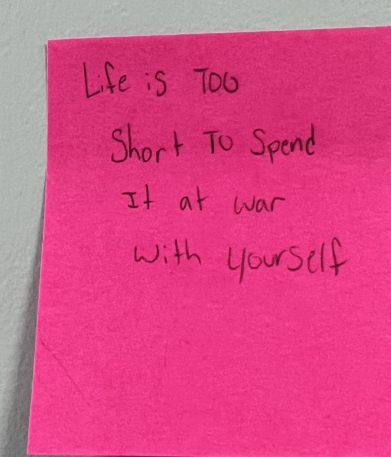 Life is Too
Short To Spend
It at war
with yourself